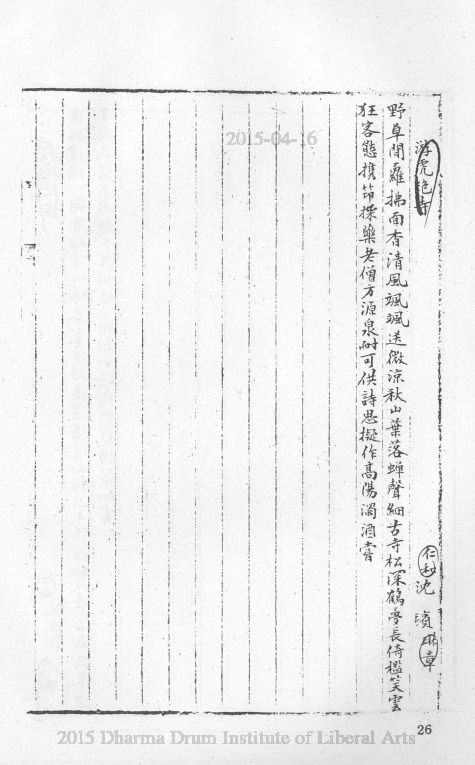 游虎跑寺
仁和沈 濱琳章
野草閒蘿拂面香清風颯颯送微涼秋山葉落蟬聲細古寺松深鶴夢長倚檻笑雲
狂客態携笻採藥老僧方源泉酎可供詩思擬作高陽濁酒嘗
2015-04-16
26
2015 Dharma Drum Institute of Liberal Arts